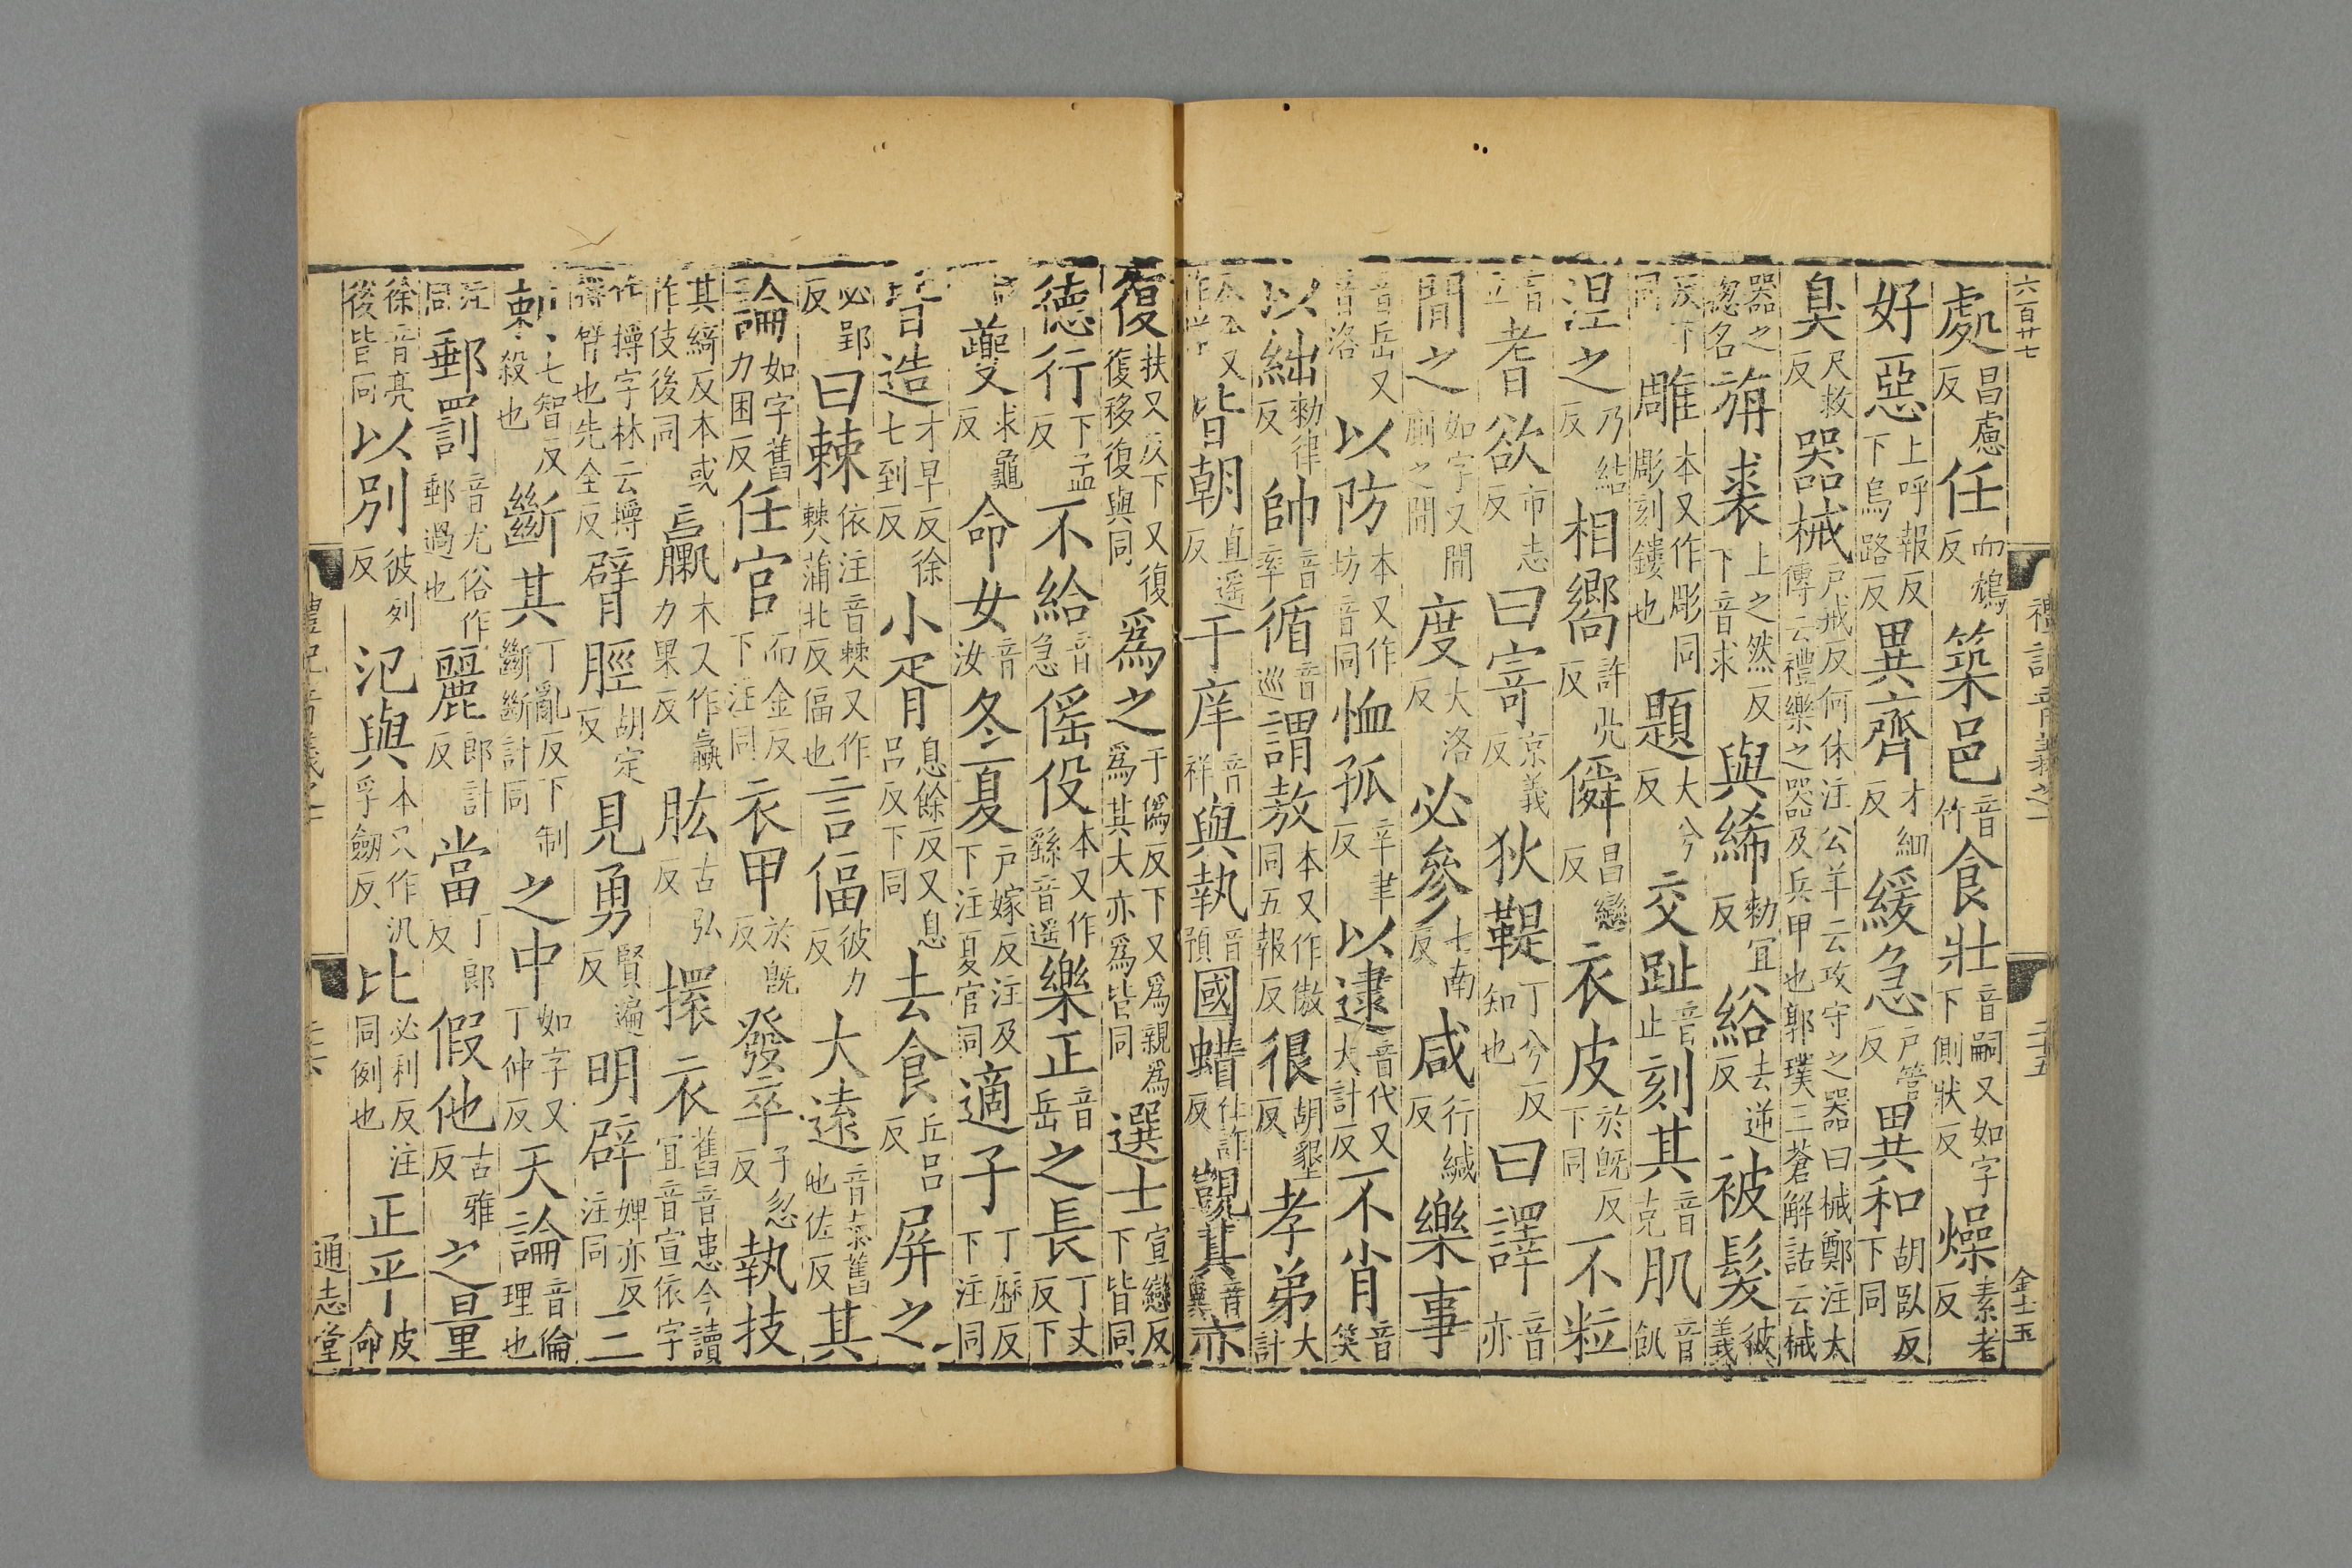 六百廿七
禮記音義之一
二十五
金士玉
處昌慮反任而鴆反築邑音竹食壯音嗣又如字下側狀反燥素老反
好惡上呼報反下烏路反異齊才細反緩急戶管反異和胡臥反下同
臭尺救反器械戶戒反何休注公羊云攻守之器曰械鄭注大傳云禮樂之器及兵甲也郭璞三蒼解詁云械
器之總名旃裘上之然反下音求與絺勑宜反綌去逆反被髮彼義
反下同雕本又作彫同彫刻鏤也題大兮反交趾音止刻其音克肌音飢
涅之乃結反相嚮許亮反僢昌戀反衣皮於旣反下同不粒
音立耆欲市志反曰寄京義反狄鞮丁兮反知也曰譯音亦
閒之如字又閒廁之閒度大洛反必參七南反咸行緘反樂事
音岳又音洛以防本又作坊音同恤孤辛聿反以逮音代又大計反不肖音笑
以絀勑律反帥音率循音巡謂敖本又作傲同五報反很胡墾反孝弟大計
皆朝直遥反于庠音祥與執音預國蜡仕詐反觀其音冀亦
復扶又反下又復復移復與同爲之于僞反下又爲親爲爲其大亦爲皆同選士宣戀反下皆同
德行下孟反不給音急傜役本又作繇音遥樂正音岳之長丁丈反下
同夔求龜反命女音汝冬夏戶嫁反注及下注夏官同適子丁歷反下注同
皆造才早反徐七到反小胥息餘反又息呂反下同去食丘呂反屏之
必郢反曰棘依注音僰又作僰蒲北反偪也言偪彼力反大遠音泰舊他佐反其
論如字舊力困反任官而金反下注同衣甲於旣反發卒子忽反執技
其綺反本或作伎後同臝本又作蠃力果反肱古弘反擐衣舊音患今讀宜音宣依字
作擐字林云擐臂也先全反臂脛胡定反見勇賢遍反明辟婢亦反注同三
刺七智反殺也斷其丁亂反下制斷斷計同之中如字又丁仲反天論音倫理也
注同郵罰音尤俗作郵過也麗郎計反當丁郎反假他古雅反之量
徐音亮後皆同以別彼列反氾與本又作汎孚劒反比必利反注同例也正平皮命
禮記音義之一
二十六
通志堂